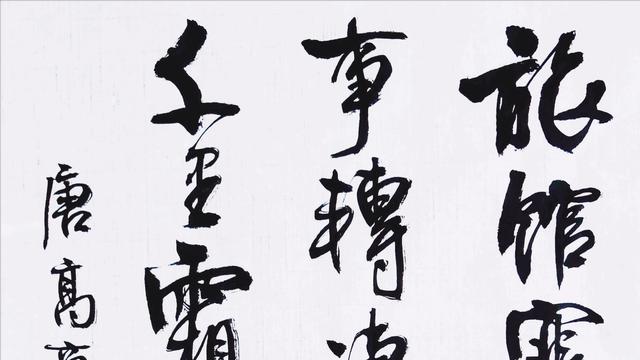 旅館寒
事轉
千里霜
唐高